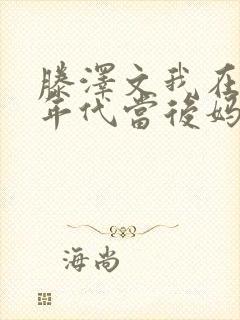 滕澤文我在
年代當後媽
海尚